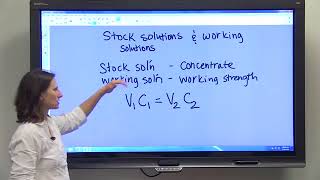 Stock solutions & working
solutions
Stock sol'n - Concentrate
working sol'n - working strength
V₁C₁ = V₂C₂